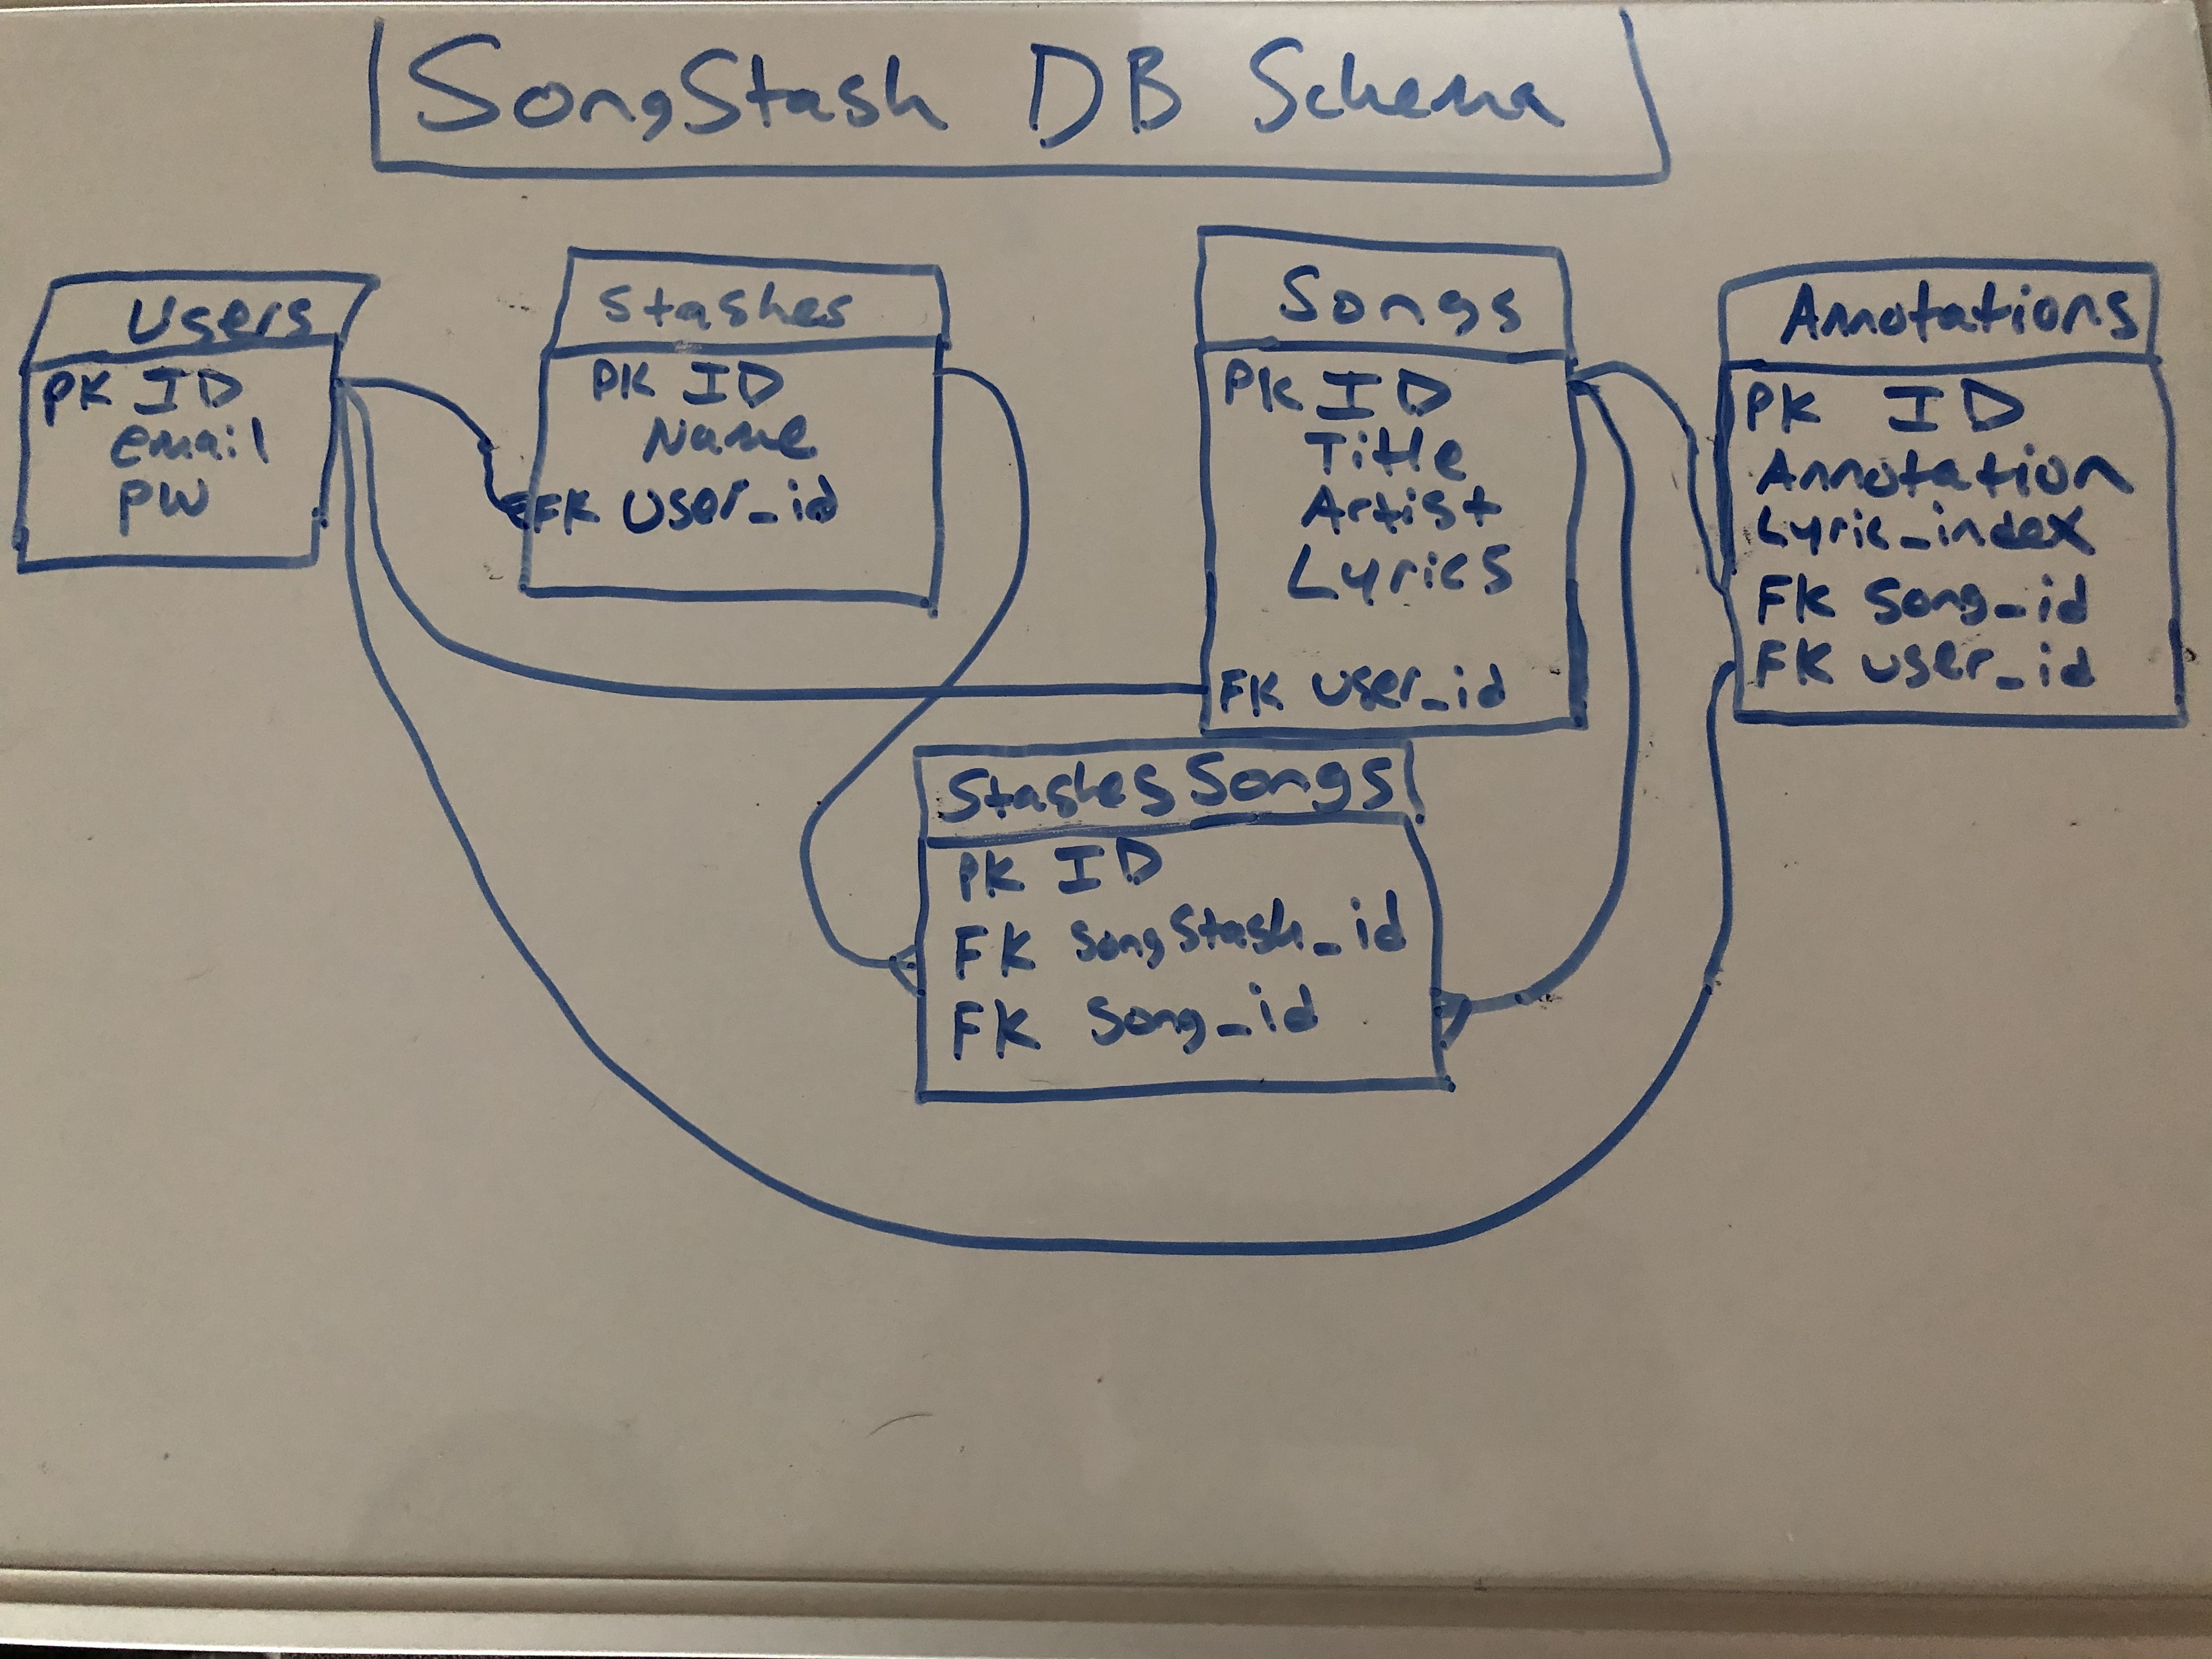 SongStash DB Schema
Users
PK ID
email
PW
Stashes
PK ID
Name
FK User_id
Songs
PK ID
Title
Artist
Lyrics
FK user_id
Annotations
PK ID
Annotation
Lyric_index
FK Song_id
FK user_id
StashesSongs
PK ID
FK SongStash_id
FK Song_id